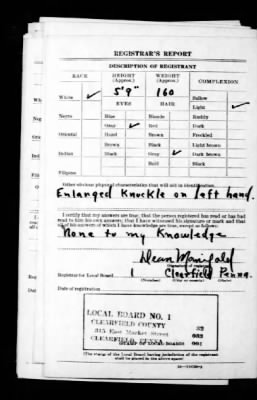 REGISTRAR'S REPORT
DESCRIPTION OF REGISTRANT
RACE HEIGHT (Approx.) WEIGHT (Approx.) COMPLEXION
5'9" 160
White ✓ Sallow
EYES HAIR Light ✓
Negro Blue Blonde Ruddy
Gray ✓ Red Dark
Oriental Hazel Brown Freckled
Brown Black Light brown
Indian Black Gray ✓ Dark brown
Bald Black
Filipino
Other obvious physical characteristics that will aid in identification
Enlarged Knuckle on left hand.
I certify that my answers are true; that the person registered has read or has had
read to him his own answers; that I have witnessed his signature or mark and that
all of his answers of which I have knowledge are true, except as follows:
None to my Knowledge
Dean Manifold
(Signature of registrar)
Registrar for Local Board 1 Clearfield Penna.
(Number) (City or county) (State)
Date of registration
LOCAL BOARD NO. 1
CLEARFIELD COUNTY 32
315 East Market Street 033
CLEARFIELD, PENNA 001
(STAMP OF LOCAL BOARD)
(The stamp of the Local Board having jurisdiction of the registrant
shall be placed in the above space.)